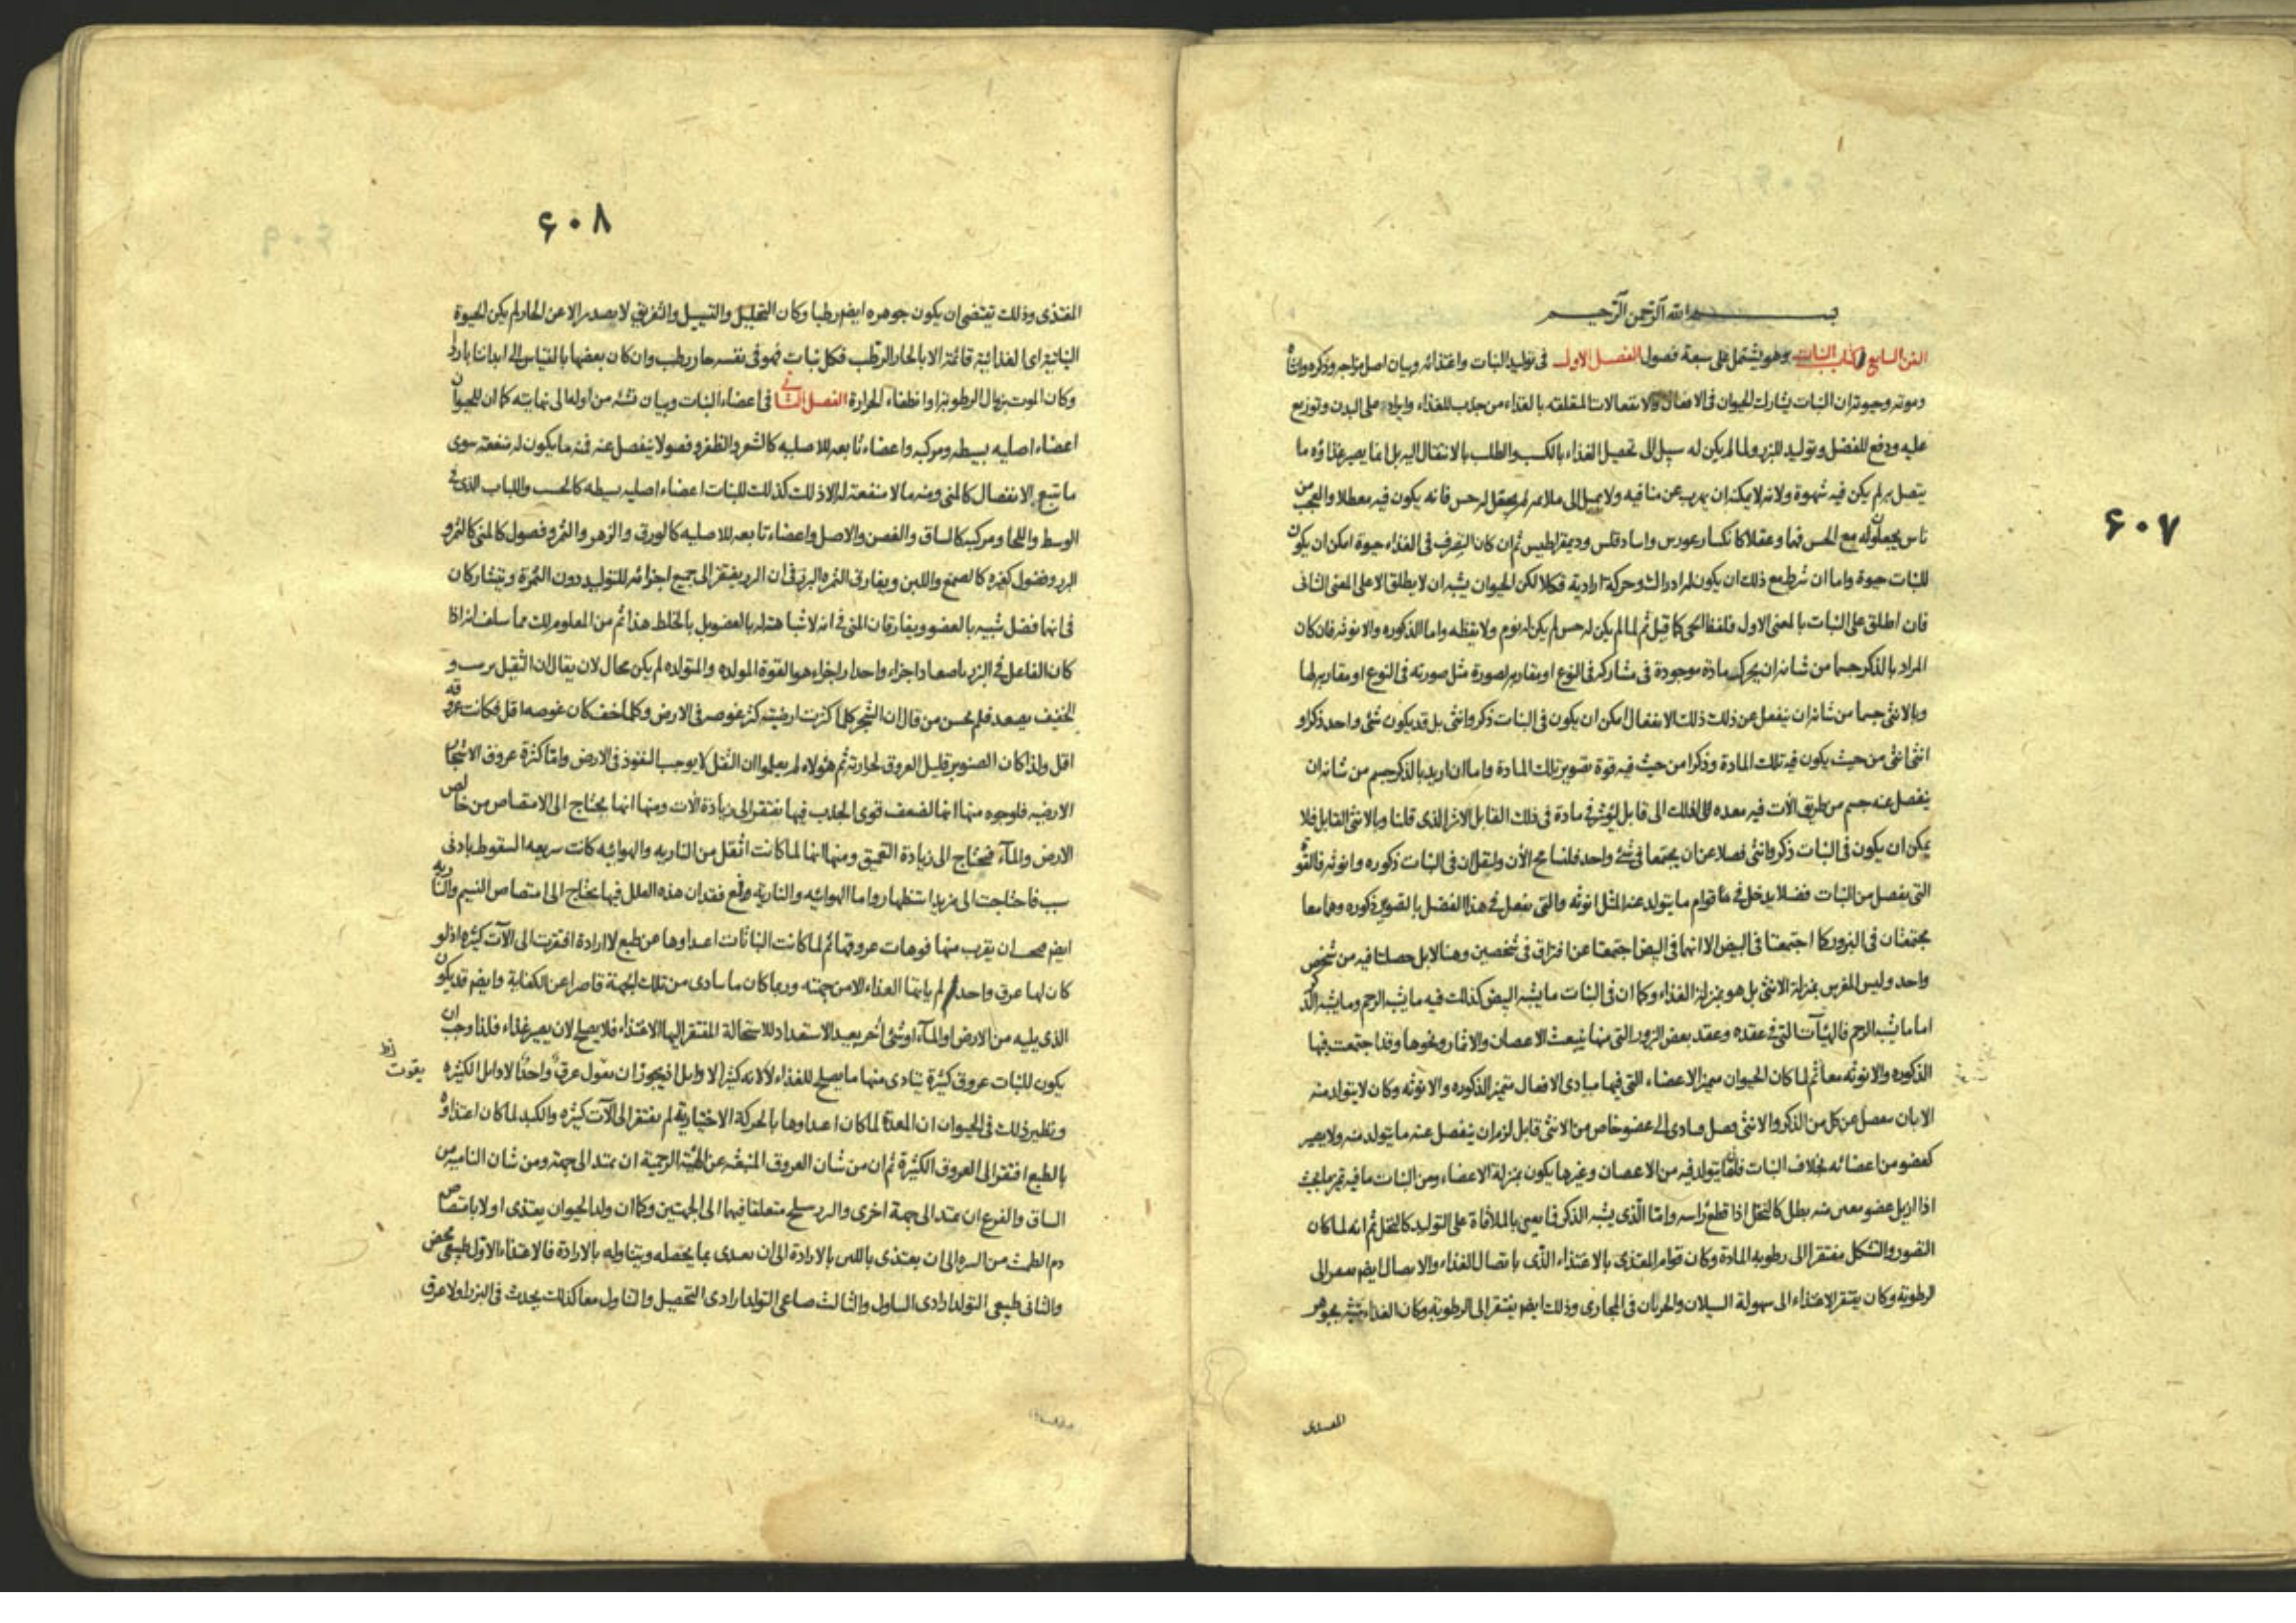 ۶۰۷
بسم الله الرحمن الرحيم
الفن السابع كتاب النبات وهو يشتمل على سبعة فصول الفصل الاول فى توليد النبات واغتذائه وبيان اصل مزاجه وذكره وانثاه
وموته وحيوته ان النبات يشارك الحيوان فى الافعال والانفعالات المتعلقه بالغذاء من جذب للغذاء وايراد على البدن وتوزيع
عليه ودفع للفضل وتوليد للبزر ولما لم يكن له سبيل الى تحصيل الغذاء بالكسب والطلب بالانتقال اليه بل انما يصير غذاؤه ما
يتصل به لم يكن فيه شهوة ولانه لا يمكنه ان يهرب عن منافيه ولا يميل الى ملائمه لم يجعل له حس فانه يكون فيه معطلا والعجب من
ناس يجعلون له مع الحس فهما وعقلا كانكساغورس وانبادقلس وديمقراطيس ثم ان كان التصرف فى الغذاء حيوة امكن ان يكون
للنبات حيوة واما ان شرط مع ذلك ان يكون له ادراك وحركة ارادية فكلا لكن الحيوان يشبه ان لا يطلق الا على المعنى الثانى
فان اطلق على النبات بالمعنى الاول فلفظ الحى كما قيل ثم لما لم يكن له حس لم يكن له نوم ولا يقظه واما الذكوره والانوثه فان كان
المراد بالذكر جسما من شانه ان يحرك مادة موجودة فى مشاركه فى النوع او مقاربه لصورة مثل صورته فى النوع او مقاربه لها
وبالانثى جسما من شانه ان ينفعل عن ذلك ذلك الانفعال امكن ان يكون فى النبات ذكر وانثى بل قد يكون شئ واحد ذكرا و
انثى انثى من حيث يكون فيه تلك المادة وذكرا من حيث فيه قوة تصوير تلك المادة واما ان اريد بالذكر جسم من شانه ان
ينفصل عنه جسم من طريق الات فيه معده لذلك الى قابل ليؤثر فى مادة فى ذلك القابل الاثر الذى قلنا وبالانثى القابل فلا
يمكن ان يكون فى النبات ذكر وانثى فضلا عن ان يجتمعا فى شئ واحد فلنسامح الان ولنقل ان فى النبات ذكوره وانوثه فالقوة
التى يفصل من النبات فضلا يدخل فى قوام ما يتولد عنه المثل انوثه والتى تفعل فى هذا الفضل بالتصوير ذكوره وهما معا
مجتمعتان فى البزور كما اجتمعتا فى البيض الا انهما فى البيض اجتمعتا عن افتراق فى شخصين وهنا لا بل حصلتا فيه من شخص
واحد وليس المغرس بمنزلة الانثى بل هو بمنزلة الغذاء وكما ان فى النبات ما يشبه البيض كذلك فيه ما يشبه الرحم وما يشبه الذكر
اما ما يشبه الرحم فالهيآت التى فى عقده وعقد بعض البزور التى منها ينبعث الاغصان والاثمار ونحوها وقد اجتمعت فيها
الذكوره والانوثه معا ثم لما كان الحيوان متميز الاعضاء التى فيها مبادى الافعال متميز الذكوره والانوثه وكان لا يتولد منه
الا بان ينفصل عن كل من الذكر والانثى فضل يتادى الى عضو خاص من الانثى قابل لزم ان ينفصل عنه ما يتولد منه ولا يصير
كعضو من اعضائه بخلاف النبات فان ما يتولد فيه من الاغصان وغيرها يكون بمنزلة الاعضاء ومن النبات ما فيه تميز ما بحيث
اذا ازيل عضو معين منه بطل كالنخل اذا قطع رأسه واما الذى يشبه الذكر فما يعين بالملاقاة على التوليد كالنخل ثم انه لما كان
التصور والتشكل مفتقرا الى رطوبه المادة وكان قوام المغتذى بالاغتذاء الذى باتصال الغذاء والاتصال ايضا مفتقر الى
الرطوبة وكان يفتقر الاغتذاء الى سهولة السيلان والجريان فى المجارى وذلك ايضا يفتقر الى الرطوبة وكان الغذاء يشبه بجوهر
المغتذى
۶۰۸
المغتذى وذلك يقتضى ان يكون جوهره ايضا رطبا وكان التحليل والتسييل والتفريق لا يصدر الا عن الحار لم يكن الحيوة
النباتية اى الغذائية قائمة الا بالحار الرطب فكل نبات فهو فى نفسه حار رطب وان كان بعضها بالقياس الى ابداننا باردا
وكان الموت بزوال الرطوبة او انطفاء الحرارة الفصل الثانى فى اعضاء النبات وبيان نشئه من اوله الى نهايته كما ان للحيوان
اعضاء اصليه بسيطه ومركبه واعضاء تابعه للاصليه كالشعر والظفر وفصولا ينفصل عنه فمنه ما يكون له منفعة سوى
ما تتبع الانفصال كالمنى ومنه ما لا منفعة له الا ذلك كذلك للنبات اعضاء اصليه بسيطه كالخشب واللباب الذى فى
الوسط واللحا ومركبه كالساق والغصن والاصل واعضاء تابعه للاصليه كالورق والزهر والثمر وفصول كالمنى كالثمر و
البزر وفضول كغيره كالصمغ واللبن ويفارق الثمره البزر فى ان البزر يفتقر الى جميع اجزائه للتوليد دون الثمرة ويتشاركان
فى انهما فضل شبيه بالعضو ويفارقان المنى فى انه لا شباهة له بالعضو بل بالخلط هذا ثم من المعلوم لك مما سلف انه اذا
كان الفاعل فى البزر باصعاد اجزاء واحدار اجزاء هو القوة المولده والمتولده لم يكن محال لان يقال ان الثقيل يرسب و
الخفيف يصعد فلم يحسن من قال ان الشجر كلما كثرت ارضيته كثر غوصه فى الارض وكلما خف كان غوصه اقل فكانت عروقه
اقل ولذا كان الصنوبر قليل العروق لحرارته ثم هؤلاء لم يعلموا ان الثقل لا يوجب النفوذ فى الارض واما كثرة عروق الاشجار
الارضيه فلوجوه منها انها لضعف قوى الجذب فيها تفتقر الى زيادة الات ومنها انها يحتاج الى الامتصاص من خالص
الارض والماء فتحتاج الى زيادة التعميق ومنها انها لما كانت اثقل من الناريه والهوائيه كانت سريعه السقوط بادنى
سبب فاحتاجت الى مزيد استظهار واما الهوائيه والناريه فمع فقدان هذه العلل فيها يحتاج الى امتصاص النسيم والناريه
ايضا فيجب ان يقرب منها فوهات عروقها ثم لما كانت النباتات اغتذاؤها عن طبع لا ارادة افتقرت الى الآت كثيره اذ لو
كان لها عرق واحد لم ياتها الغذاء الا من جهته وربما كان ما يتادى من تلك الجهة قاصرا عن الكفاية وايضا قد يكون
الذى يليه من الارض او الماء او شئ آخر بعيد الاستعداد للاستحالة المفتقر اليها الاغتذاء فلا يصلح لان يصير غذاء فلذا وجب ان
يكون للنبات عروق كثيرة يتادى منها ما يصلح للغذاء لا لانه كثير الاوائل فيجوز ان يقول عرق واحد لاوائل الكثيره
يقوت
ونظير ذلك فى الحيوان ان المعدة لما كان اغتذاؤها بالحركة الاختيارية لم تفتقر الى الآت كثيره والكبد لما كان اغتذاؤه
بالطبع افتقر الى العروق الكثيرة ثم ان من شان العروق المنبعثه عن الهيئة الرحمية ان تمتد الى جهة ومن شان النامى من
الساق والفرع ان يمتد الى جهة اخرى والبزر متعلقا فيها الى الجهتين وكما ان ولد الحيوان يغتذى اولا بامتصاص
دم الطمث من السره الى ان يغتذى باللبن بالارادة الى ان يغتذى بما يحصله ويتناوله بالارادة فالاغتذاء الاول طبيعى محض
والثانى طبيعى التولد ارادى التناول والثالث صناعى التولد ارادى التحصيل والتناول معا كذلك يحدث فى البزر اولا عرق